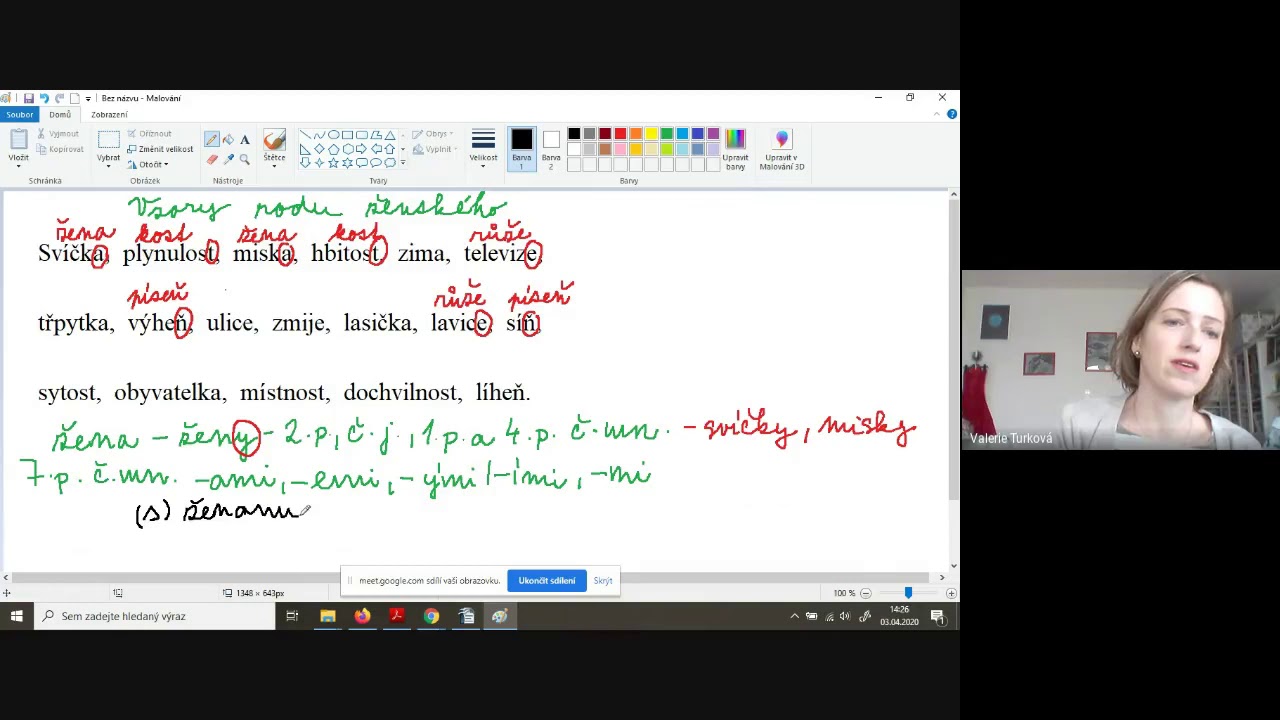 Bez názvu - Malování
Soubor Domů Zobrazení
Vložit Vyjmout Kopírovat Vybrat Oříznout Změnit velikost Otočit A Štětce Obrys Výplň Velikost Barva 1 Barva 2 Upravit barvy Upravit v Malování 3D
Schránka Obrázek Nástroje Tvary Barvy
Vzory rodu ženského
žena kost žena kost růže
Svíčka, plynulost, miska, hbitost, zima, televize,
píseň růže píseň
třpytka, výheň, ulice, zmije, lasička, lavice, síň,
sytost, obyvatelka, místnost, dochvilnost, líheň.
žena - ženy - 2.p., č.j., 1.p. a 4.p. č.mn. - svíčky, misky
7.p. č.mn. -ami, -emi, -ými/-ími, -mi
(s) ženami
Valerie Turková
meet.google.com sdílí vaši obrazovku. Ukončit sdílení Skrýt
1348 × 643px 100 %
Sem zadejte hledaný výraz
14:26
03.04.2020